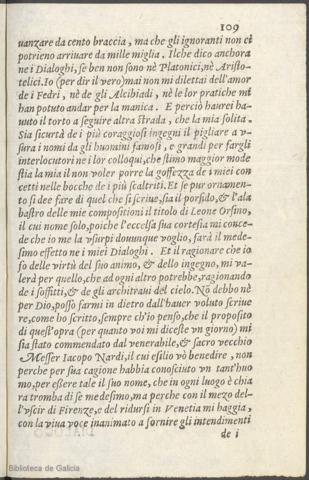 109
uanzare da cento braccia, ma che gli ignoranti non ci
potrieno arriuare da mille miglia. Ilche dico anchora
ne i Dialoghi, se ben non sono nè Platonici, nè Aristo-
telici. Io (per dir il vero) mai non mi dilettai dell'amor
de i Fedri, nè de gli Alcibiadi, nè le lor pratiche mi
han potuto andar per la manica. E perciò haurei ha-
uuto il torto a seguire altra strada, che la mia solita.
Sia sicurtà de i più coraggiosi ingegni il pigliare a v-
sura i nomi da gli huomini famosi, e grandi per fargli
interlocutori ne i lor colloqui, che stimo maggior mode
stia la mia il non voler porre la goffezza de i miei con
cetti nelle bocche de i più scaltriti. Et se pur ornamen-
to si dee fare di quel che si scriue, sia il porfido, & l'ala
bastro delle mie compositioni il titolo di Leone Orsino,
il cui nome solo, poiche l'eccelsa sua cortesia mi conce-
de che io me la vsurpi douunque voglio, farà il mede-
simo effetto ne i miei Dialoghi. Et il ragionare che io
fo delle virtù del suo animo, & dello ingegno, mi va-
lerà per quello, che ad ogni altro potrebbe, ragionando
de i soffitti, & de gli architraui del cielo. Nō debbo nè
per Dio, posso farmi in dietro dall'hauer voluto scriue
re, come ho scritto, sempre ch'io penso, che il proposito
di quest'opra (per quanto voi mi diceste vn giorno) mi
sia stato commendato dal venerabile, & sacro vecchio
Messer Iacopo Nardi, il cui esilio vò benedire, non
perche per sua cagione habbia conosciuto vn tant'huo
mo, per essere tale il suo nome, che in ogni luogo è chia
ra tromba di se medesimo, ma perche con il mezo del-
l'vscir di Firenze, e del ridursi in Venetia mi haggia,
con la viua voce inanimato a fornire gli intendimenti
de i
Biblioteca de Galicia